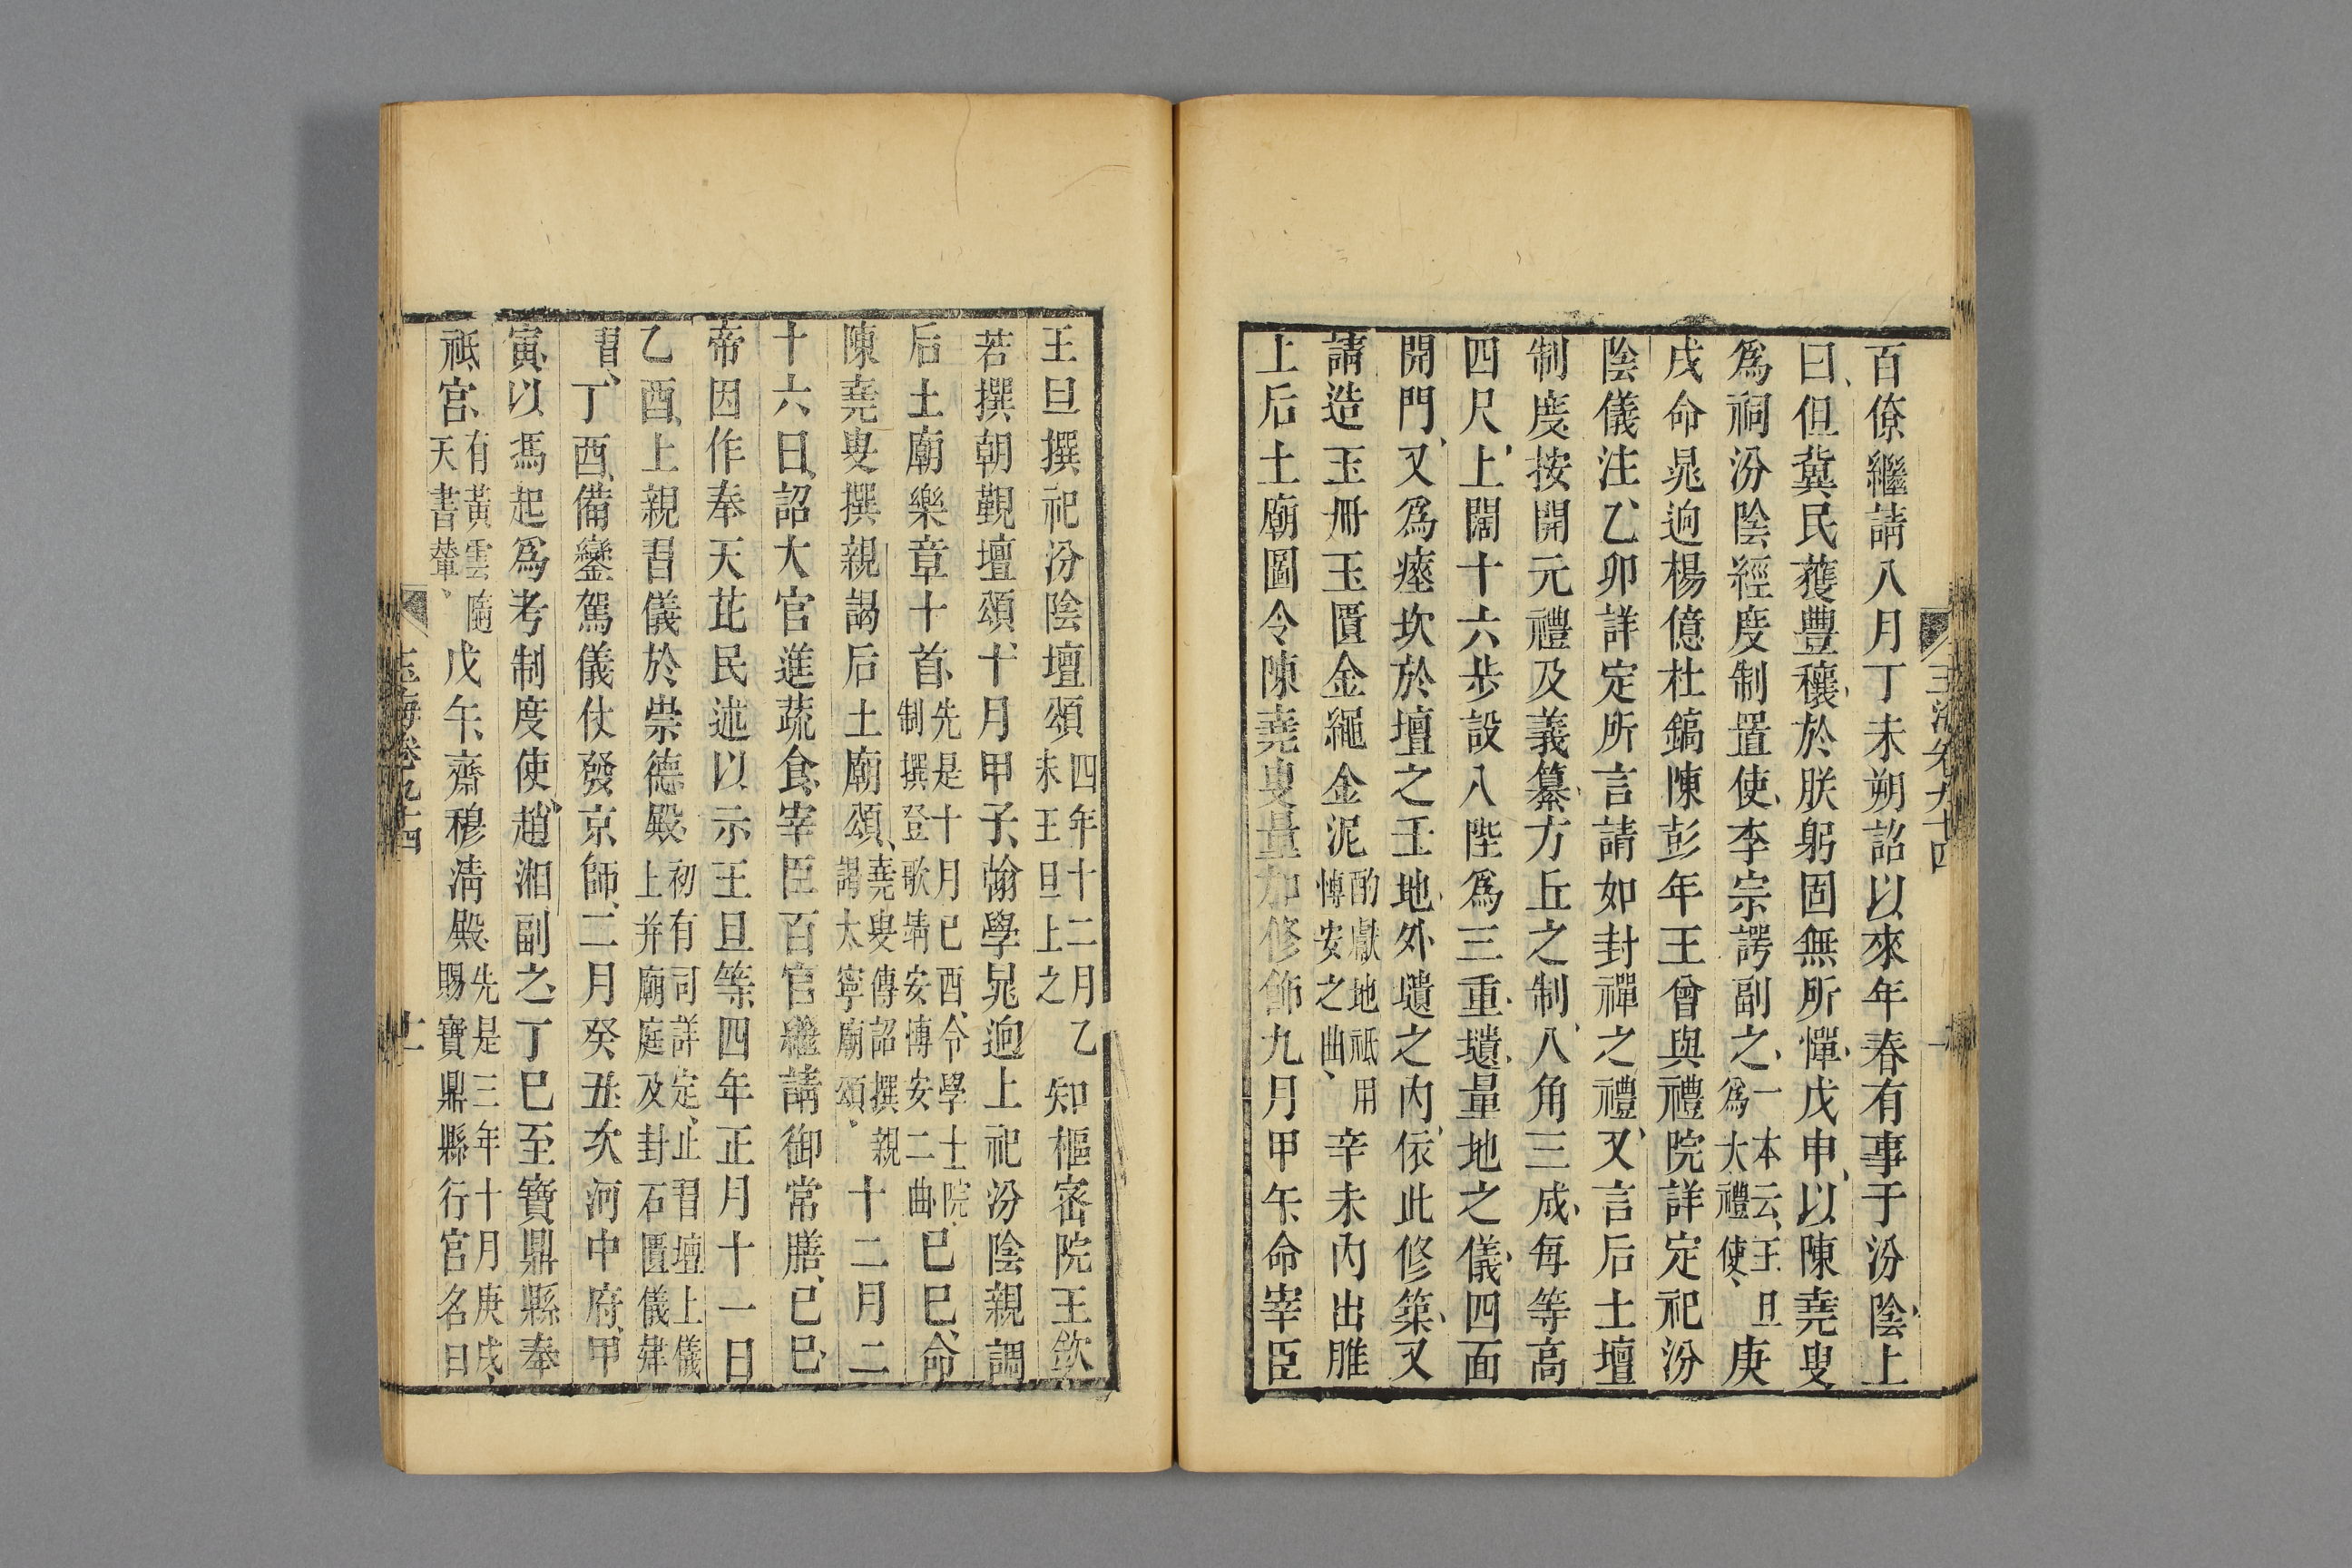 百僚繼請八月丁未朔詔以來年春有事于汾陰上
曰但冀民蓰豐穰於朕躬固無所憚戊申以陳堯叟
爲祠汾陰經度制置使李宗諤副之一本云王旦爲大禮使庚
戌命晁迥楊億杜鎬陳彭年王曾與禮院詳定祀汾
陰儀注乙卯詳定所言請如封禪之禮又言后土壇
制度按開元禮及義纂方丘之制八角三成每等高
四尺上闊十六步設八陛爲三重壝量地之儀四面
開門又爲瘞坎於壇之壬地外壝之內依此修築又
請造玉冊玉匱金繩金泥酌獻地祇用博安之曲辛未內出脽
上后土廟圖令陳堯叟量加修飾九月甲午命宰臣
玉海卷九十四
王旦撰祀汾陰壇頌四年十二月乙未王旦上之知樞密院王欽
若撰朝覲壇頌十月甲子翰學晁迥上祀汾陰親謁
后土廟樂章十首先是十月己酉令學士院制撰登歌靖安博安二曲己巳命
陳堯叟撰親謁后土廟頌堯叟傳詔撰親謁太寧廟頌十二月二
十六日詔大官進蔬食宰臣百官繼請御常膳己巳
帝因作奉天芘民述以示王旦等四年正月十一日
乙酉上親習儀於崇德殿初有司詳定止習壇上儀上并廟庭及封石匱儀肄
習丁酉備鑾駕儀仗發京師二月癸丑次河中府甲
寅以馮起爲考制度使趙湘副之丁巳至寶鼎縣奉
祗宮有黃雲隨天書輦戊午齋穆清殿先是三年十月庚戌賜寶鼎縣行宮名曰
玉海卷九十四